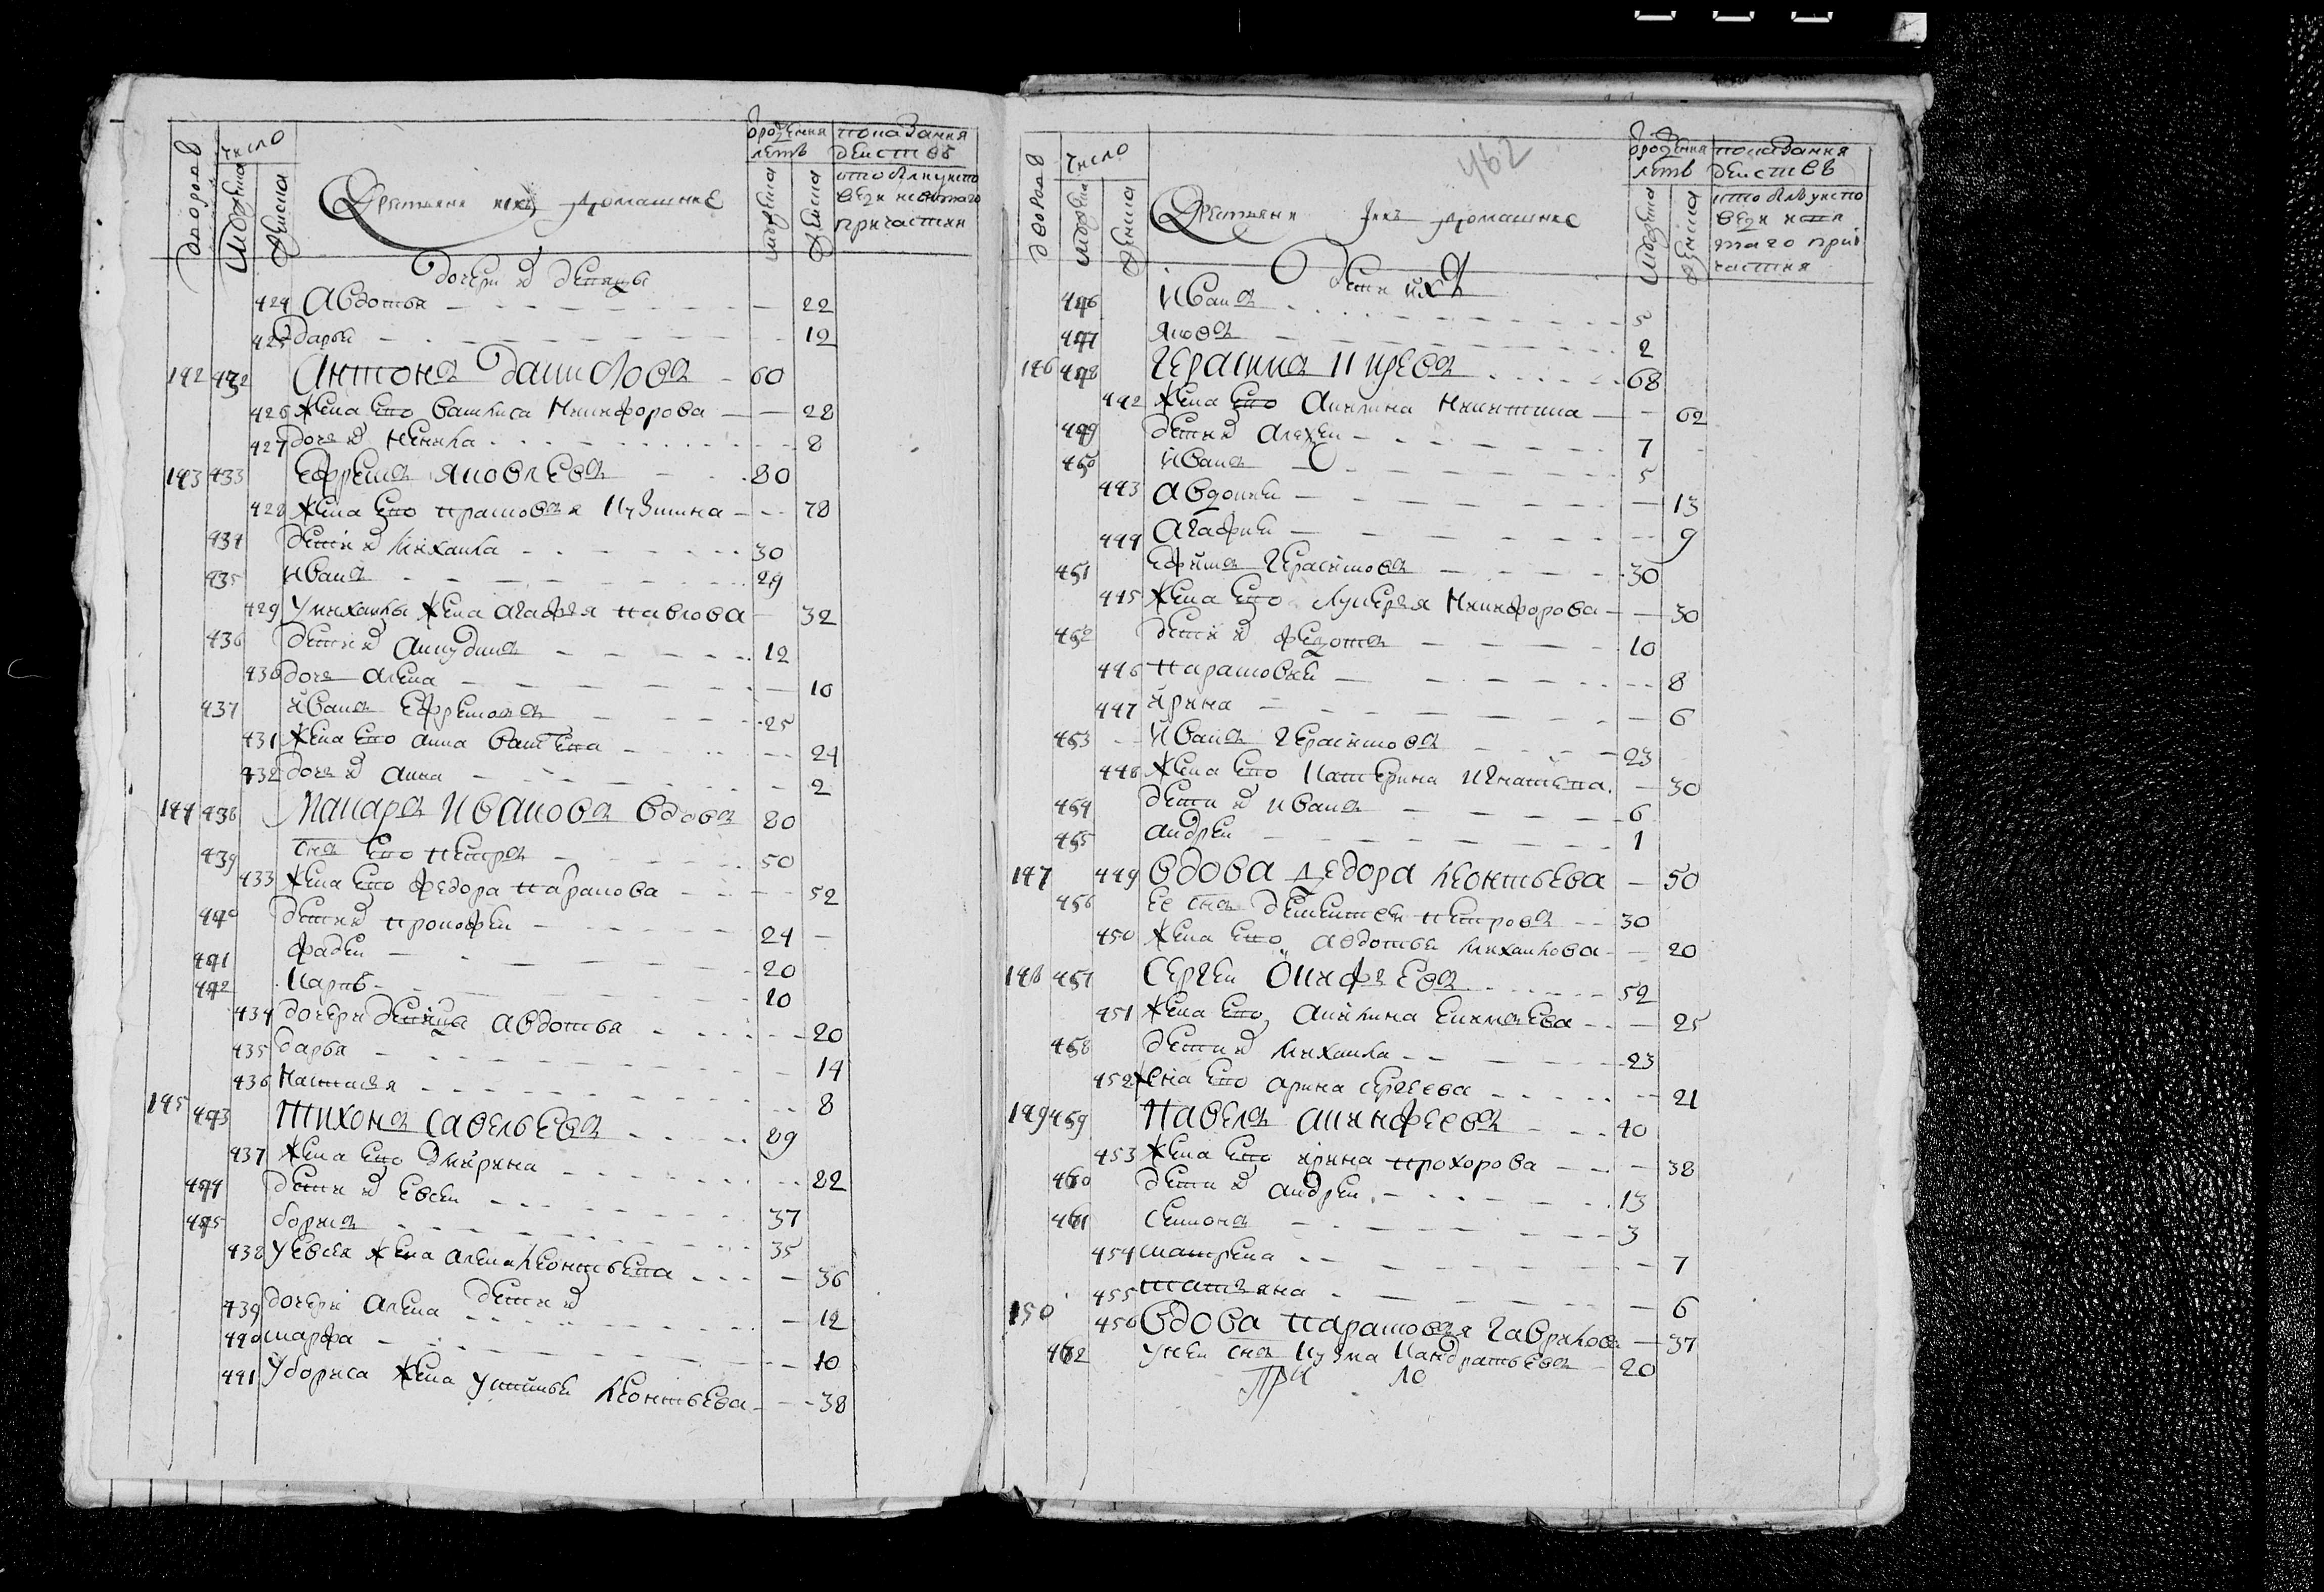 дворовъ
число
мужеска
женска
Крестьяне и ихъ домашние
от рождения
летъ
мужеска
женска
показания
действъ
кто был у испо
веди и святаго
причастия
дочери ж девицы
424 Авдотья 22
425 Дарья 12
142 432 Антонъ Даниловъ 60
426 жена ево Василиса Никифорова 28
427 дочь ж Ненила 8
143 433 Ефремъ Яковлевъ 80
428 жена ево Прасковья Кузмина 78
434 дети ж Михаила 30
435 Иванъ 29
429 у Михаилы жена Агафья Павлова 32
436 дети ж Анкудинъ 12
430 дочь Алена 10
437 Иванъ Ефремовъ 25
431 жена ево Анна 24
432 дочь ж Анна 2
144 438 Макаръ Ивановъ вдовъ 80
439 снъ ево Петръ 50
433 жена ево Федора 52
440 дети ж Прокофеи 24
441 Фадеи 20
442 Карпъ 10
434 дочери девицы Авдотья 20
435 Дарья 14
436 Настасья 8
145 443 Тихонъ Савельевъ 89
437 жена ево 82
444 дети ж Евсеи 37
445 Борисъ 35
438 у Евсея жена Алена Леонтьева 36
дети ж
439 дочери Алена 12
440 Марфа 10
441 у Бориса жена Устинья Леонтьева 38
462
дворовъ
число
мужеска
женска
Крестьяне и ихъ домашние
от рождения
летъ
мужеска
женска
показания
действъ
кто былъ у испо
веди и свя
таго при
частия
дети ихъ
446 Иванъ 5
447 Яковъ 2
146 448 Герасимъ 68
442 жена ево Акилина Никитина 62
449 дети ж Алексеи 7
450 Иванъ 5
443 Авдотья 13
444 Агафья 9
451 Ефимъ Герасимовъ 30
445 жена ево Лукерья Никифорова 30
452 дети ж Федотъ 10
446 Парасковья 8
447 Ирина 6
453 Иванъ Герасимовъ 23
448 жена ево Катерина Игнатьева 30
454 дети ж Иванъ 6
455 Андреи 1
147 449 вдова Федора Леонтьева 50
456 ее снъ Дементеи Петровъ 30
450 жена ево Авдотья Михаилова 20
148 457 Сергеи 52
451 жена ево Акилина 25
458 дети ж Михаила 23
452 жена ево Арина Сергеева 21
149 459 Павелъ 40
453 жена ево Ирина Прохорова 38
460 дети ж Андреи 13
461 Семионъ 3
454 Матрена 7
455 Татияна 6
150 456 вдова Парасковья Гаврилова 37
462 у неи снъ Кузма Кандратьевъ 20